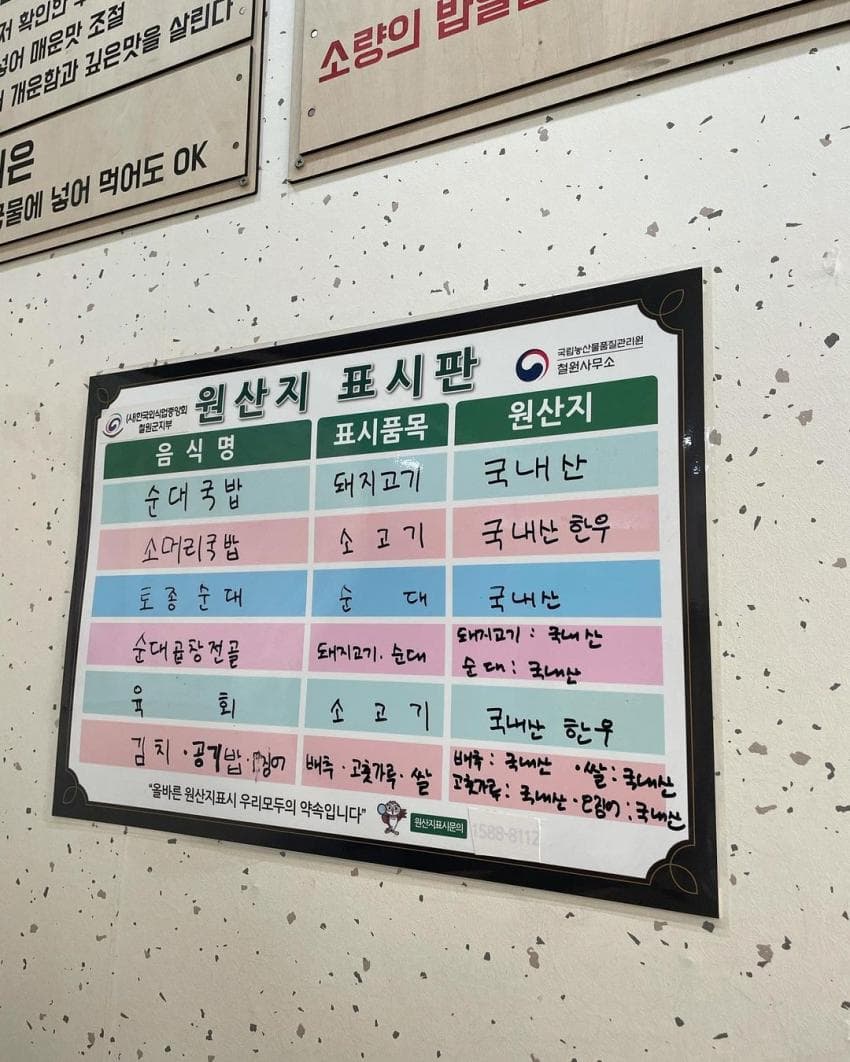 확인한
넣어 매운맛 조절
개운함과 깊은맛을 살린다
은
국물에 넣어 먹어도 OK
소량의
(사)한국외식업중앙회
철원군지부
원산지 표시판
국립농산물품질관리원
철원사무소
음식명 표시품목 원산지
순대국밥 돼지고기 국내산
소머리국밥 소고기 국내산 한우
토종순대 순대 국내산
순대곱창전골 돼지고기. 순대 돼지고기 : 국내산
순대 : 국내산
육회 소고기 국내산 한우
김치 · 공기밥 · 배추 · 고춧가루 · 쌀 배추 : 국내산 · 쌀 : 국내산
고춧가루 : 국내산 · 오징어 : 국내산
"올바른 원산지표시 우리모두의 약속입니다"
원산지표시문의 1588-8112